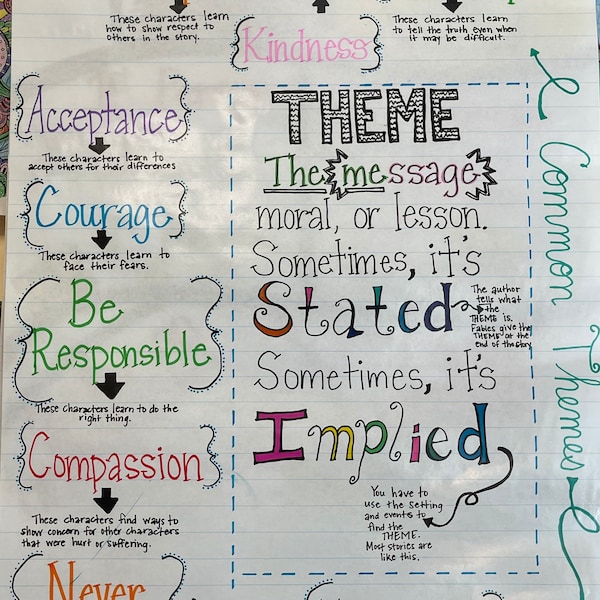 These characters learn
how to show respect to
others in the story.
These characters learn
to tell the truth even when
it may be difficult.
Kindness
Acceptance
These characters learn to
accept others for their differences
Courage
These characters learn to
face their fears.
Be
Responsible
These characters learn to do the
right thing.
Compassion
These characters find ways to
show concern for other characters
that were hurt or suffering.
Never
THEME
The message
moral, or lesson.
Sometimes, it's
Stated
The author
tells what
the
THEME is.
Fables give the
THEME at the
end of the story
Sometimes, it's
Implied
You have to
use the setting
and events to
find the
THEME.
Most stories are
like this.
Common Themes